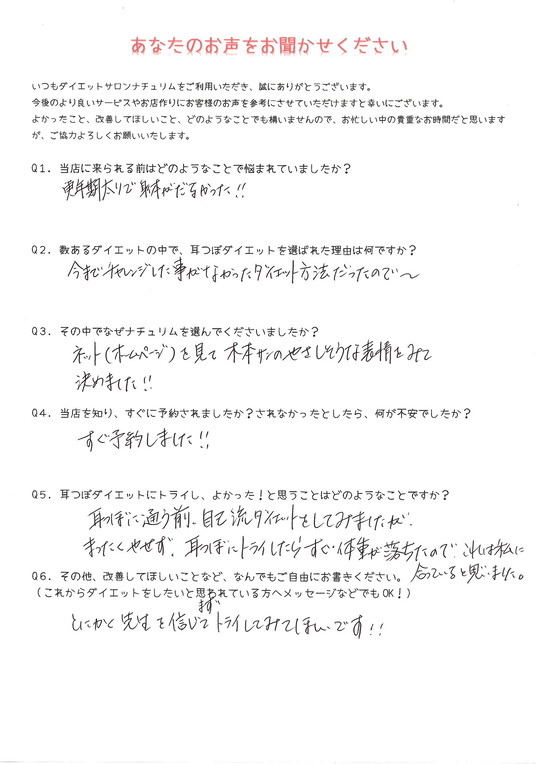 あなたのお声をお聞かせください
いつもダイエットサロンナチュリムをご利用いただき、誠にありがとうございます。
今後のより良いサービスやお店作りにお客様のお声を参考にさせていただけますと幸いにございます。
よかったこと、改善してほしいこと、どのようなことでも構いませんので、お忙しい中の貴重なお時間だと思います
が、ご協力よろしくお願いいたします。
Q1. 当店に来られる前はどのようなことで悩まれていましたか？
更年期太りで身体がだるかった!!
Q2. 数あるダイエットの中で、耳つぼダイエットを選ばれた理由は何ですか？
今までチャレンジした事がなかったダイエット方法だったので〜
Q3. その中でなぜナチュリムを選んでくださいましたか？
ネット(ホームページ)を見て 木本サンのやさしそうな表情をみて
決めました!!
Q4. 当店を知り、すぐに予約されましたか？されなかったとしたら、何が不安でしたか？
すぐ予約しました!!
Q5. 耳つぼダイエットにトライし、よかった！と思うことはどのようなことですか？
耳つぼに通う前、自己流ダイエットをしてみましたが、
まったくやせず、耳つぼにトライしたらすぐ体重が落ちたので、これは私に
合っていると思いました。
Q6. その他、改善してほしいことなど、なんでもご自由にお書きください。
（これからダイエットをしたいと思われている方へメッセージなどでもOK！）
とにかく先生を信じてまずトライしてみてほしいです!!